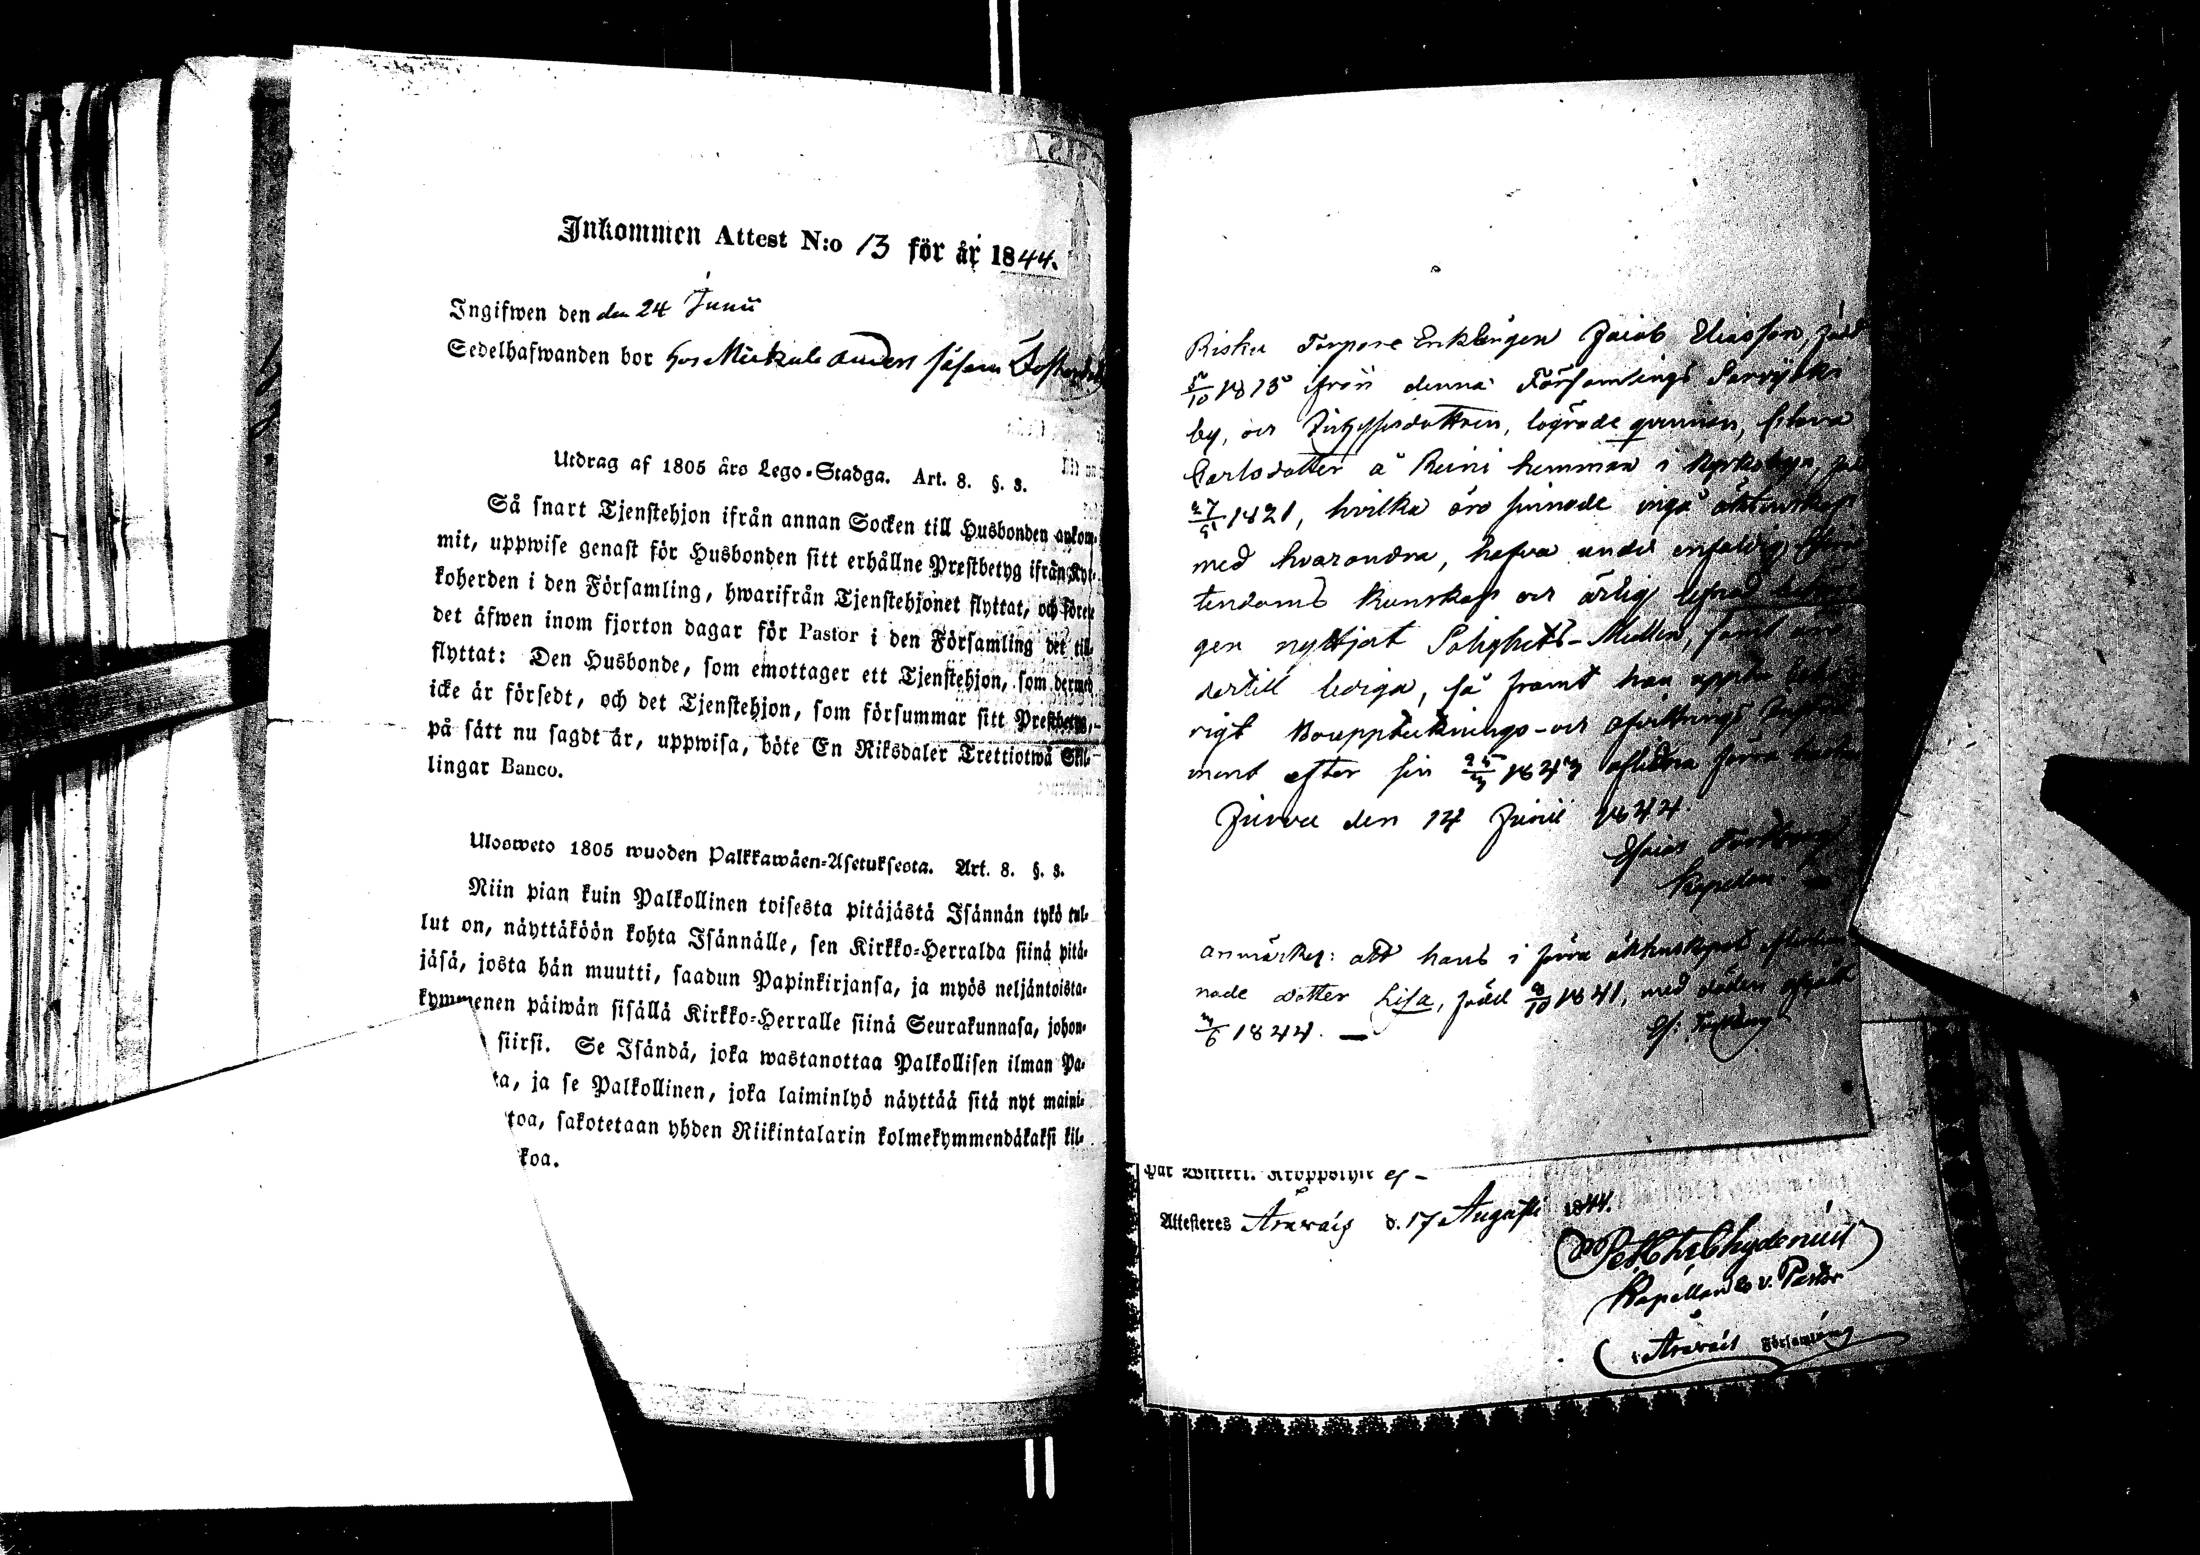 Inkommen Attest N:o 13 för år 1844.
Ingifwen den den 24 Junii
Sedelhafwanden bor hos Anders
Utdrag af 1805 års Lego-Stadga. Art. 8. §. 3.
Så snart Tjenstehjon ifrån annan Socken till Husbonden ankom-
mit, uppwise genast för Husbonden sitt erhållne Prestbetyg ifrån Kyr-
koherden i den Församling, hwarifrån Tjenstehjonet flyttat, och förete
det äfwen inom fjorton dagar för Pastor i den Församling det till-
flyttat: Den Husbonde, som emottager ett Tjenstehjon, som dermed
icke är försedt, och det Tjenstehjon, som försummar sitt Prestbetyg,
på sätt nu sagdt är, uppwisa, böte En Riksdaler Trettiotwå Skil-
lingar Banco.
Ulosweto 1805 wuoden Palkkawäen-Asetuksesta. Art. 8. §. 3.
Niin pian kuin Palkollinen toisesta pitäjästä Isännän tykö tul-
lut on, näyttäköön kohta Isännälle, sen Kirkko-Herralda siinä pitä-
jäsä, josta hän muutti, saadun Papinkirjansa, ja myös neljäntoista-
kymmenen päiwän sisällä Kirkko-Herralle siinä Seurakunnasa, johon-
siirsi. Se Isändä, joka wastanottaa Palkollisen ilman Pa-
ta, ja se Palkollinen, joka laiminlyö näyttää sitä nyt maini-
toa, sakotetaan yhden Riikintalarin kolmekymmendäkaksi kil-
koa.
Torpare Enklingen Jacob Eliasson, född
från denna Församlings
by, och lögrade qvinnan,
Carlsdotter å hemman i
27/5 1821, hvilka äro sinnade ingå äktenskap
med hvarandra, hafva under
tendoms Kunskap och ärlig lefnad
gen nyttjat Salighets-Medlen, samt äro
dertill lediga, så framt han
rigt Bouppteknings- och afvittrings
ment efter sin aflidna förra hustru
den 14 Junii 1844.
Esaias
Kapellan.
anmärkes: att hans i förra äktenskapet
nade dotter Lisa, född 1841, med döden afgått
1844. —
Es:
Attesteres d. 17 Augusti 1844.
Chydenius
Kapellan & v. Pastor
i Församling